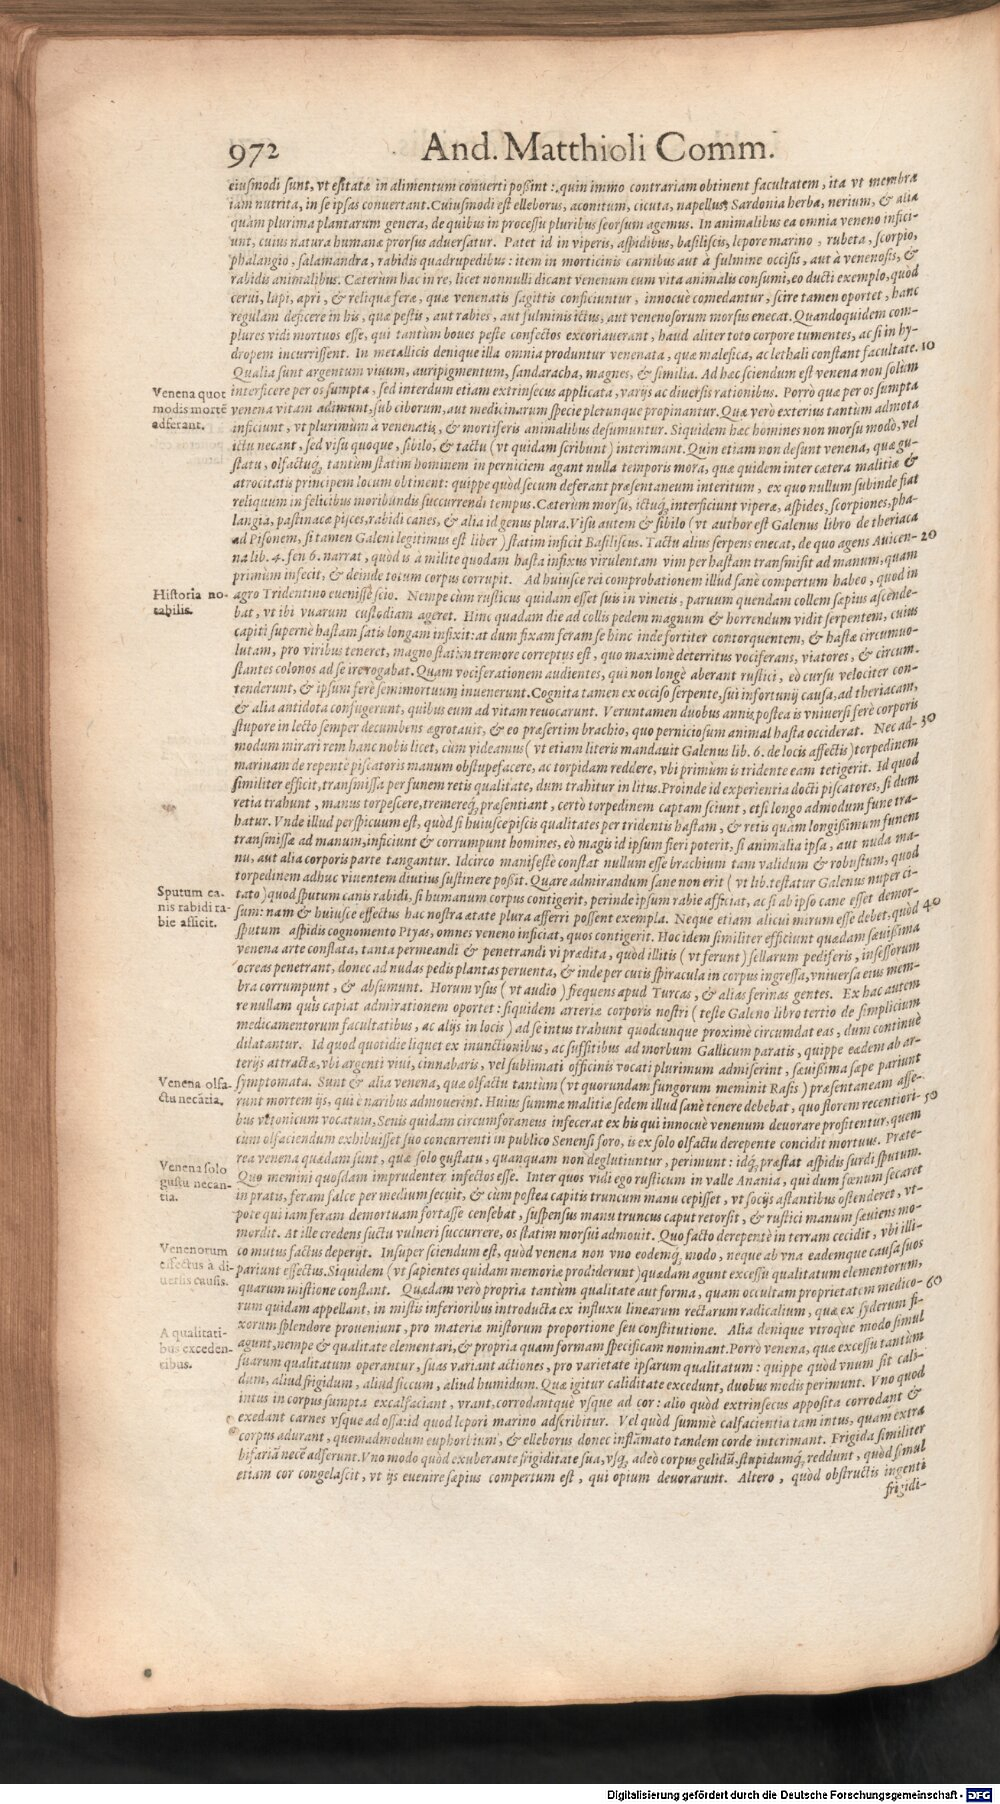 972 And. Matthioli Comm.
eiusmodi sunt, vt estitatæ in alimentum conuerti poßint: quin immo contrariam obtinent facultatem, ita vt membra
iam nutrita, in se ipsas conuertant. Cuiusmodi est elleborus, aconitum, cicuta, napellus, Sardonia herba, nerium, & alia
quàm plurima plantarum genera, de quibus in processu pluribus seorsum agemus. In animalibus ea omnia veneno infici-
unt, cuius natura humanæ prorsus aduersatur. Patet id in viperis, aspidibus, basiliscis, lepore marino, rubeta, scorpio,
phalangio, salamandra, rabidis quadrupedibus: item in morticinis carnibus aut à fulmine occisis, aut à venenosis, &
rabidis animalibus. Cæterùm hac in re, licet nonnulli dicant venenum cum vita animalis consumi, eo ducti exemplo, quòd
cerui, lupi, apri, & reliquæ feræ, quæ venenatis sagittis conficiuntur, innocuè comedantur, scire tamen oportet, hanc
regulam deficere in his, quæ pestis, aut rabies, aut fulminis ictus, aut venenosorum morsus enecat. Quandoquidem com-
plures vidi mortuos esse, qui tantùm boues peste confectos excoriauerant, haud aliter toto corpore tumentes, ac si in hy-
dropem incurrissent. In metallicis denique illa omnia produntur venenata, quæ malefica, ac lethali constant facultate. 10
Qualia sunt argentum viuum, auripigmentum, sandaracha, magnes, & similia. Ad hæc sciendum est venena non solùm
Venena quot
modis mortē
adferant.
interficere per os sumpta, sed interdum etiam extrinsecus applicata, varijs ac diuersis rationibus. Porrò quæ per os sumpta
venena vitam adimunt, sub ciborum, aut medicinarum specie plerunque propinantur. Quæ verò exterius tantùm admota
inficiunt, vt plurimùm à venenatis, & mortiferis animalibus desumuntur. Siquidem hæc homines non morsu modò, vel
ictu necant, sed visu quoque, sibilo, & tactu (vt quidam scribunt) interimunt. Quin etiam non desunt venena, quæ gu-
statu, olfactuq́, tantùm statim hominem in perniciem agant nulla temporis mora, quæ quidem inter cætera malitiæ &
atrocitatis principem locum obtinent: quippe quòd secum deferant præsentaneum interitum, ex quo nullum subinde fiat
reliquum in felicibus moribundis succurrendi tempus. Cæterùm morsu, ictuq́, interficiunt viperæ, aspides, scorpiones, pha-
langia, pastinacæ pisces, rabidi canes, & alia id genus plura. Visu autem & sibilo (vt author est Galenus libro de theriaca
ad Pisonem, si tamen Galeni legitimus est liber) statim inficit Basiliscus. Tactu alius serpens enecat, de quo agens Auicen- 20
na lib. 4. fen 6. narrat, quòd is à milite quodam hasta infixus virulentam vim per hastam transmisit ad manum, quam
primùm infecit, & deinde totum corpus corrupit. Ad huiusce rei comprobationem illud sanè compertum habeo, quod in
Historia no-
tabilis.
agro Tridentino euenisse scio. Nempe cùm rusticus quidam esset suis in vinetis, paruum quendam collem sæpius ascende-
bat, vt ibi vuarum custodiam ageret. Hinc quadam die ad collis pedem magnum & horrendum vidit serpentem, cuius
capiti supernè hastam satis longam infixit: at dum fixam feram se hinc inde fortiter contorquentem, & hastæ circumuo-
lutam, pro viribus teneret, magno statim tremore correptus est, quo maximè deterritus vociferans, viatores, & circum-
stantes colonos ad se ire rogabat. Quam vociferationem audientes, qui non longè aberant rustici, eò cursu velociter con-
tenderunt, & ipsum ferè semimortuum inuenerunt. Cognita tamen ex occiso serpente, sui infortunij causa, ad theriacam,
& alia antidota confugerunt, quibus eum ad vitam reuocarunt. Veruntamen duobus annis postea is vniuersi ferè corporis
stupore in lecto semper decumbens ægrotauit, & eo præsertim brachio, quo perniciosum animal hasta occiderat. Nec ad- 30
modum mirari rem hanc nobis licet, cùm videamus (vt etiam literis mandauit Galenus lib. 6. de locis affectis) torpedinem
marinam de repentè piscatoris manum obstupefacere, ac torpidam reddere, vbi primùm is tridente eam tetigerit. Id quod
similiter efficit, transmissa per funem retis qualitate, dum trahitur in litus. Proinde id experientia docti piscatores, si dum
retia trahunt, manus torpescere, tremereq́, præsentiant, certò torpedinem captam sciunt, etsi longo admodum fune tra-
hatur. Vnde illud perspicuum est, quòd si huiusce piscis qualitates per tridentis hastam, & retis quàm longißimum funem
transmissæ ad manum, inficiunt & corrumpunt homines, eò magis id ipsum fieri poterit, si animalia ipsa, aut nuda ma-
nu, aut alia corporis parte tangantur. Idcirco manifestè constat nullum esse brachium tam validum & robustum, quod
torpedinem adhuc viuentem diutius sustinere poßit. Quare admirandum sane non erit (vt lib. testatur Galenus nuper ci-
Sputum ca-
nis rabidi ra-
bie afficit.
tato) quod sputum canis rabidi, si humanum corpus contigerit, perinde ipsum rabie afficiat, ac si ab ipso cane esset demor-
sum: nam & huiusce effectus hac nostra ætate plura afferri possent exempla. Neque etiam alicui mirum esse debet, quòd 40
sputum aspidis cognomento Ptyas, omnes veneno inficiat, quos contigerit. Hoc idem similiter efficiunt quædam sæuißima
venena arte conflata, tanta permeandi & penetrandi vi prædita, quòd illitis (vt ferunt) sellarum pediferis, insessorum
ocreas penetrant, donec ad nudas pedis plantas peruenta, & inde per cutis spiracula in corpus ingressa, vniuersa eius mem-
bra corrumpunt, & absumunt. Horum vsus (vt audio) frequens apud Turcas, & alias ferinas gentes. Ex hac autem
re nullam quis capiat admirationem oportet: siquidem arteriæ corporis nostri (teste Galeno libro tertio de simplicium
medicamentorum facultatibus, ac alijs in locis) ad se intus trahunt quodcunque proximè circumdat eas, dum continuè
dilatantur. Id quod quotidie liquet ex inunctionibus, ac suffitibus ad morbum Gallicum paratis, quippe eædem ab ar-
terijs attractæ, vbi argenti viui, cinnabaris, vel sublimati officinis vocati plurimum admiserint, sæuißima sæpe pariunt
Venena olfa-
ctu necātia.
symptomata. Sunt & alia venena, quæ olfactu tantùm (vt quorundam fungorum meminit Rasis) præsentaneam affe-
runt mortem ijs, qui ea naribus admouerint. Huius summæ malitiæ sedem illud sanè tenere debebat, quo florem recentiori- 50
bus vetonicum vocatum, Senis quidam circumforaneus infecerat ex his qui innocuè venenum deuorare profitentur, quem
cùm olfaciendum exhibuisset suo concurrenti in publico Senensi foro, is ex solo olfactu derepente concidit mortuus. Præte-
Venena solo
gustu necan-
tia.
rea venena quædam sunt, quæ solo gustatu, quanquam non deglutiuntur, perimunt: idq́, præstat aspidis surdi sputum.
Quo memini quosdam imprudenter infectos esse. Inter quos vidi ego rusticum in valle Anania, qui dum fœnum secaret
in pratis, feram falce per medium secuit, & cùm postea capitis truncum manu cepisset, vt socijs astantibus ostenderet, vt-
pote qui iam feram demortuam fortasse censebat, suspensus manu truncus caput retorsit, & rustici manum sæuiens mo-
mordit. At ille credens suctu vulneri succurrere, os statim morsui admouit. Quo facto derepentè in terram cecidit, vbi illi-
Venenorum
effectus à di-
uersis causis.
co mutus factus deperijt. Insuper sciendum est, quòd venena non vno eodemq́, modo, neque ab vna eademque causa suos
pariunt effectus. Siquidem (vt sapientes quidam memoriæ prodiderunt) quædam agunt excessu qualitatum elementorum,
quarum mistione constant. Quædam verò propria tantùm qualitate aut forma, quam occultam proprietatem medico- 60
rum quidam appellant, in mistis inferioribus introducta ex influxu linearum rectarum radicalium, quæ ex syderum fi-
xorum splendore proueniunt, pro materiæ mistorum proportione seu constitutione. Alia denique vtroque modo simul
A qualitati-
bus exceden-
tibus.
agunt, nempe & qualitate elementari, & propria quam formam specificam nominant. Porrò venena, quæ excessu tantùm
suarum qualitatum operantur, suas variant actiones, pro varietate ipsarum qualitatum: quippe quòd vnum sit cali-
dum, aliud frigidum, aliud siccum, aliud humidum. Quæ igitur caliditate excedunt, duobus modis perimunt. Vno quod
intus in corpus sumpta excalfaciant, vrant, corrodantquè vsque ad cor: alio quòd extrinsecus apposita corrodant &
exedant carnes vsque ad ossa: id quod lepori marino adscribitur. Vel quòd summè calfacientia tam intus, quàm extra
corpus adurant, quemadmodum euphorbium, & elleborus donec inflāmato tandem corde interimant. Frigida similiter
bifariā necē adferunt. Vno modo quòd exuberante frigiditate sua, vsq́, adeò corpus gelidū, stupidumq́, reddunt, quòd simul
etiam cor congelascit, vt ijs euenire sæpius compertum est, qui opium deuorarunt. Altero, quòd obstructis ingenti
frigidi-
Digitalisierung gefördert durch die Deutsche Forschungsgemeinschaft - DFG